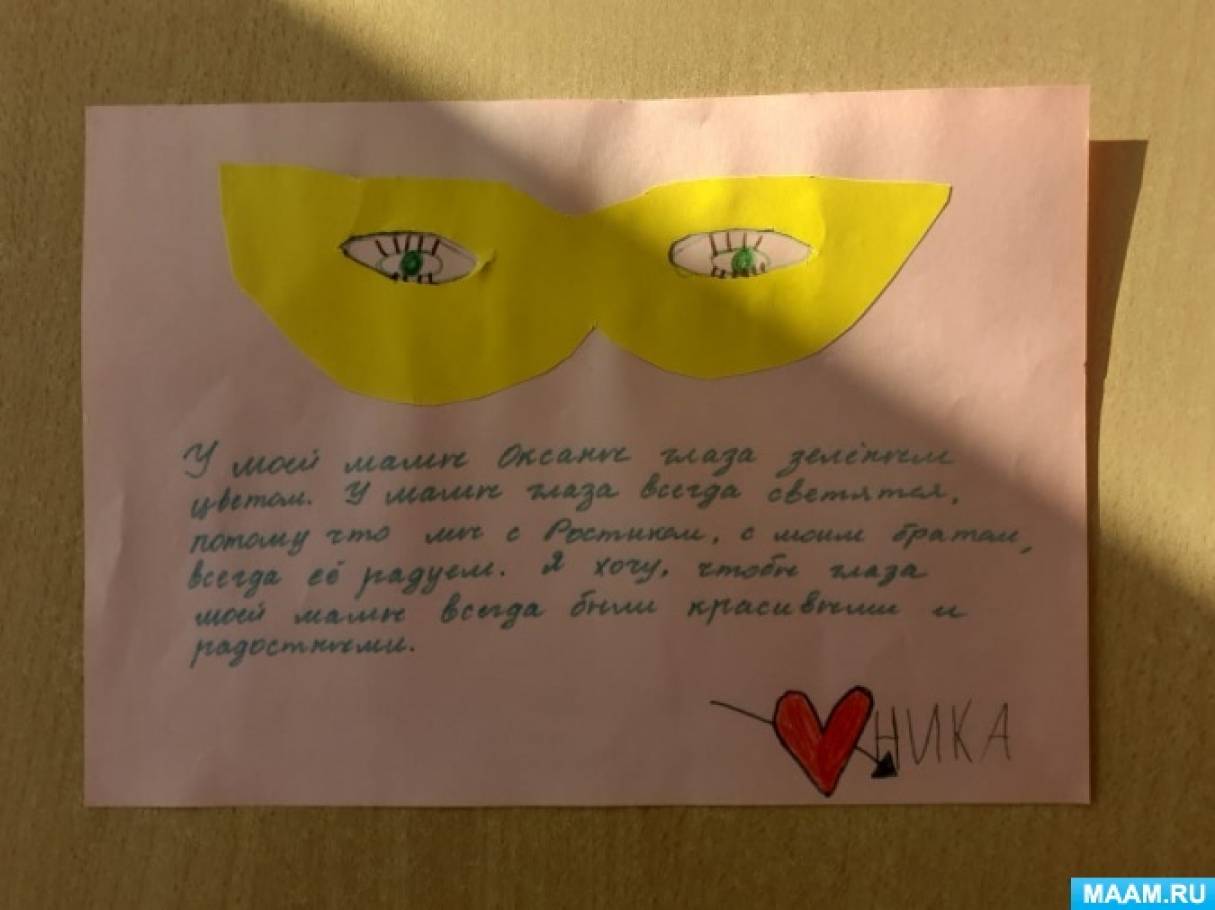 У моей мамы Оксаны глаза зелёным
цветом. У мамы глаза всегда светятся,
потому что мы с Ростиком, с моим братом,
всегда её радуем. Я хочу, чтобы глаза
моей мамы всегда были красивыми и
радостными.
НИКА
MAAM.RU